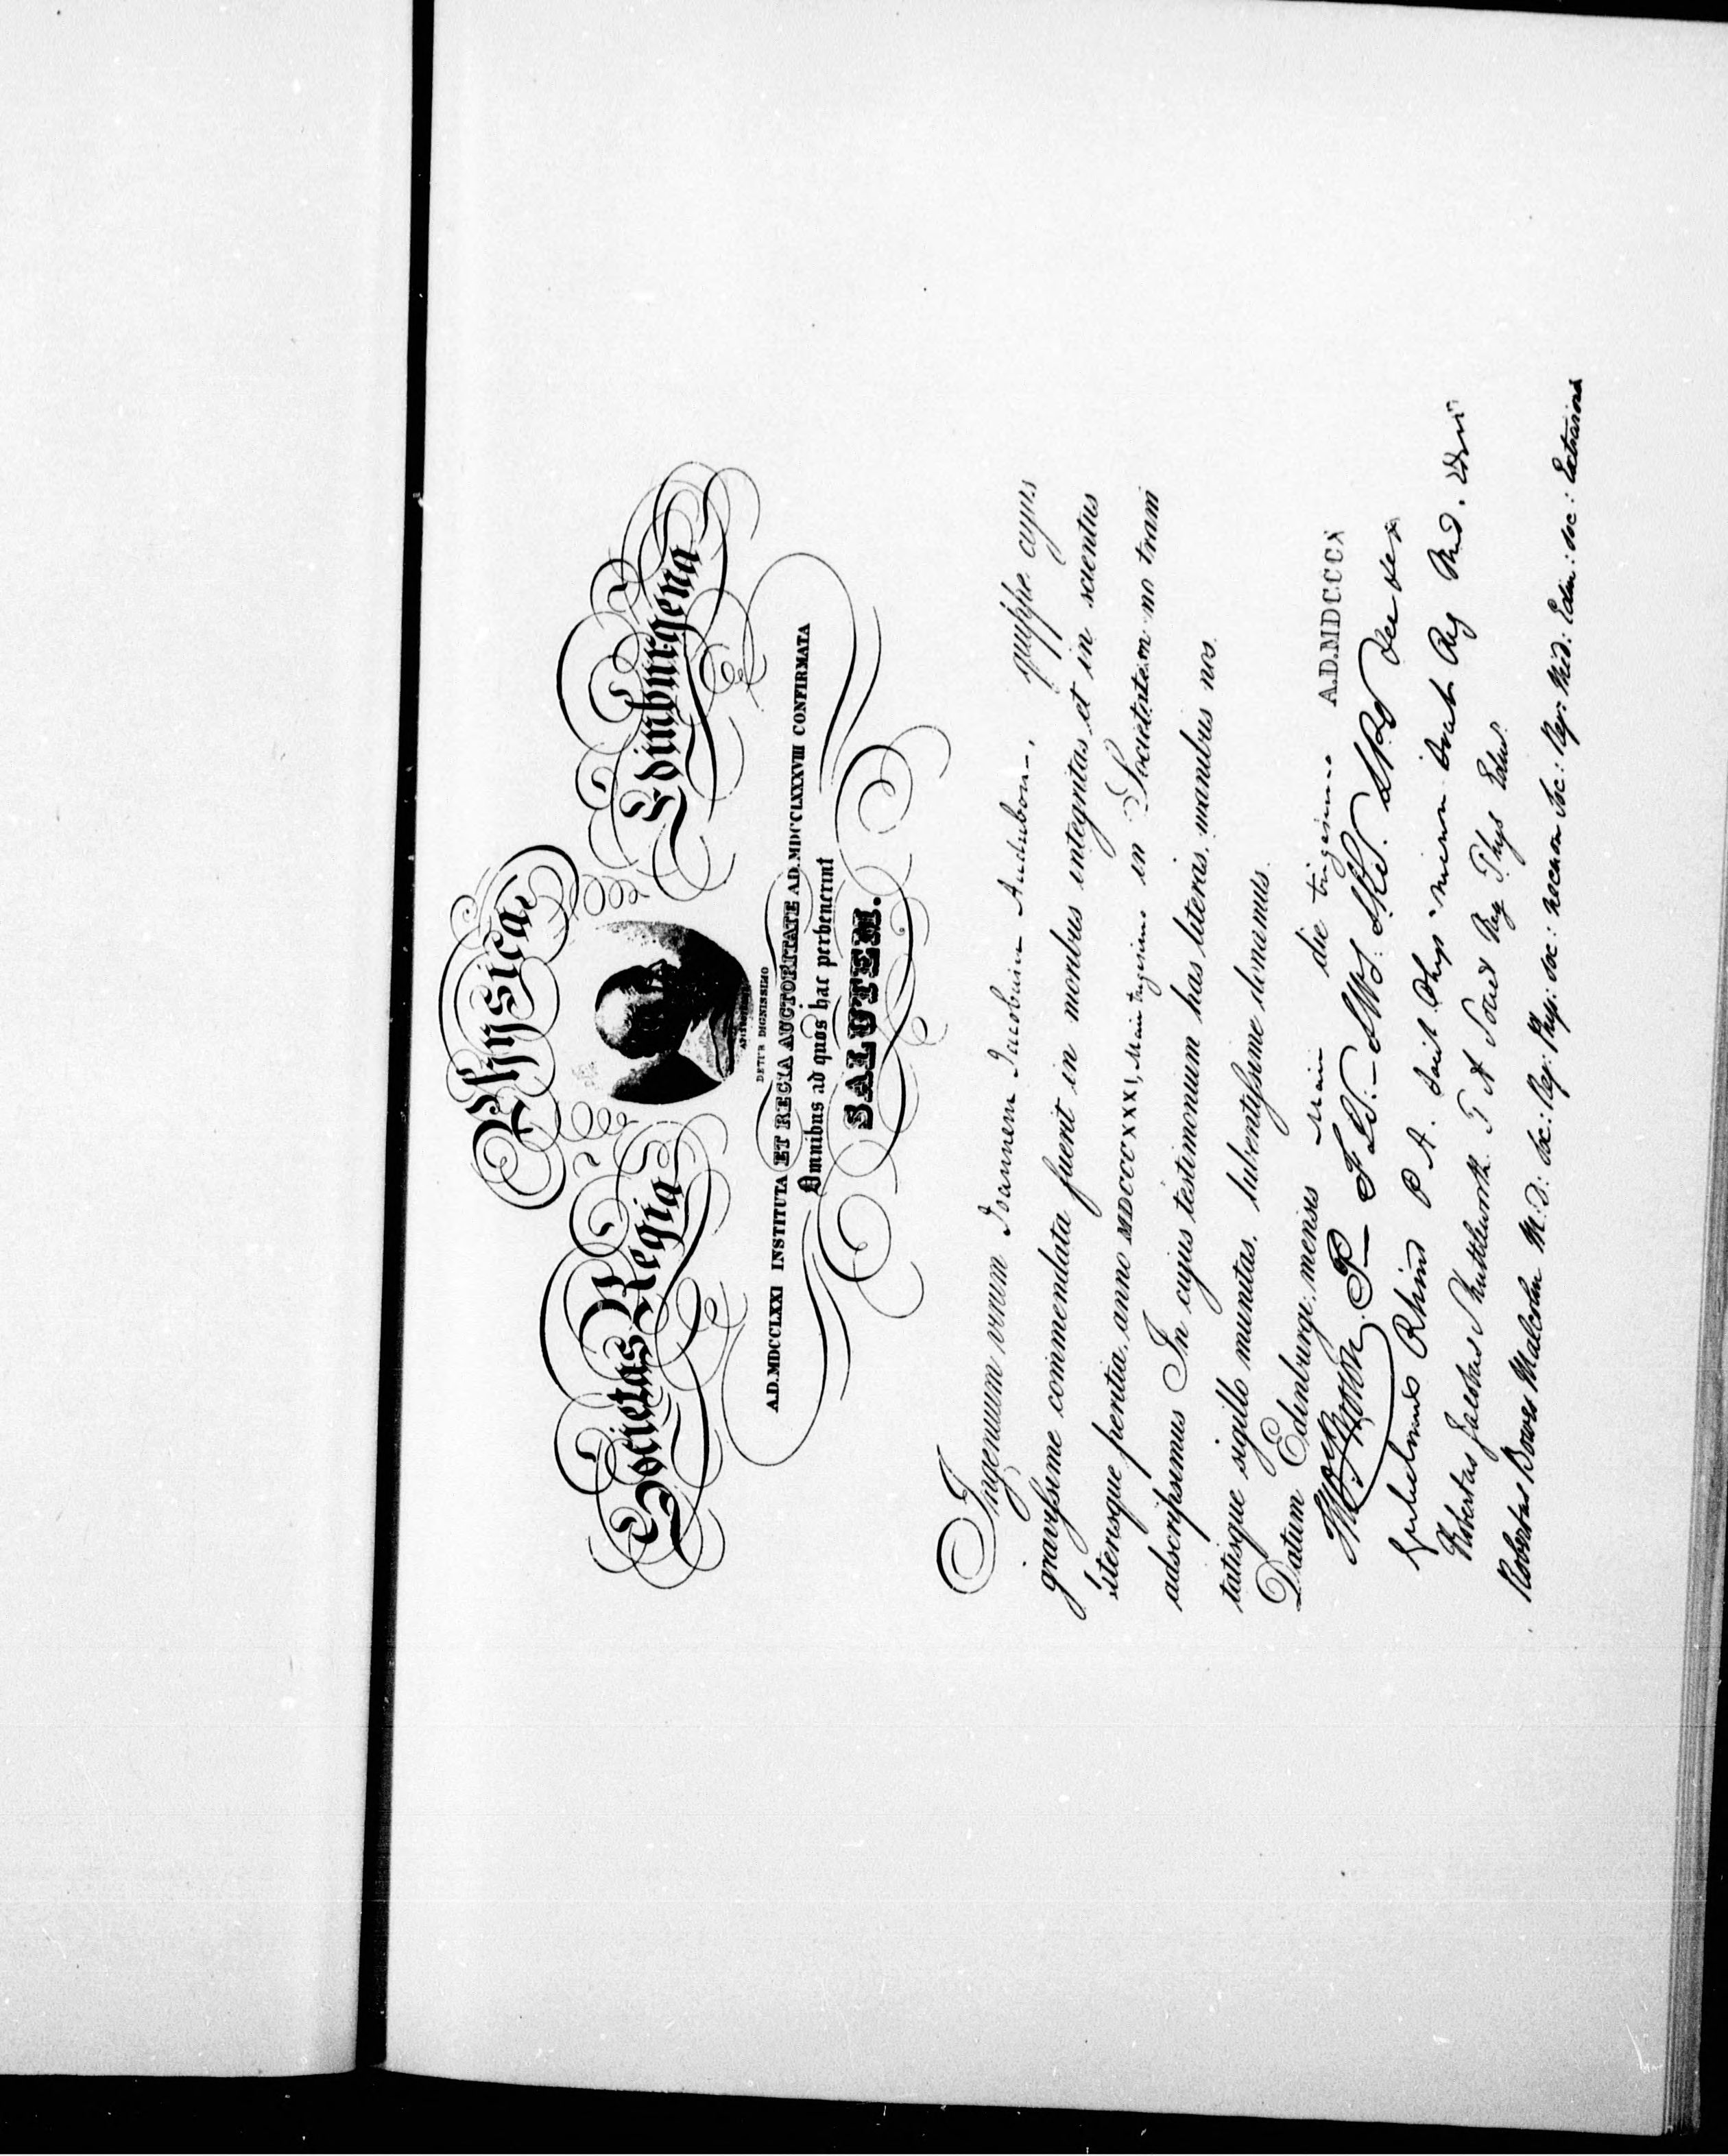 Societas Regia Physica Edinburgena
DETUR DIGNISSIMO
A.D. MDCCLXXI INSTITUTA ET REGIA AUCTORITATE A.D. MDCCLXXXVIII CONFIRMATA
Omnibus ad quos hac pervenerint
SALUTEM.
Ingenuum virum Ioannem Iacobum Audubon, quippe cujus
gravissime commendata fuerit in moribus integritas, et in scientiis
literisque peritia, anno MDCCCXXXI, Maii trigesimo in Societatem no tram
adscripsimus In cujus testimonium has literas, manibus nos
tatisque sigillo munitas, lubentissime donamus.
Datum Edinburgi, mensis Maii die trigesimo A.D. MDCCCX
P
Gulielmus Rhind P A.
Robertus Shuttleworth
Robertus Bowes Malcolm M.D: Soc: Reg: Phys: Soc: necnon Soc: Reg: Med: Edin: Soc: Extraord